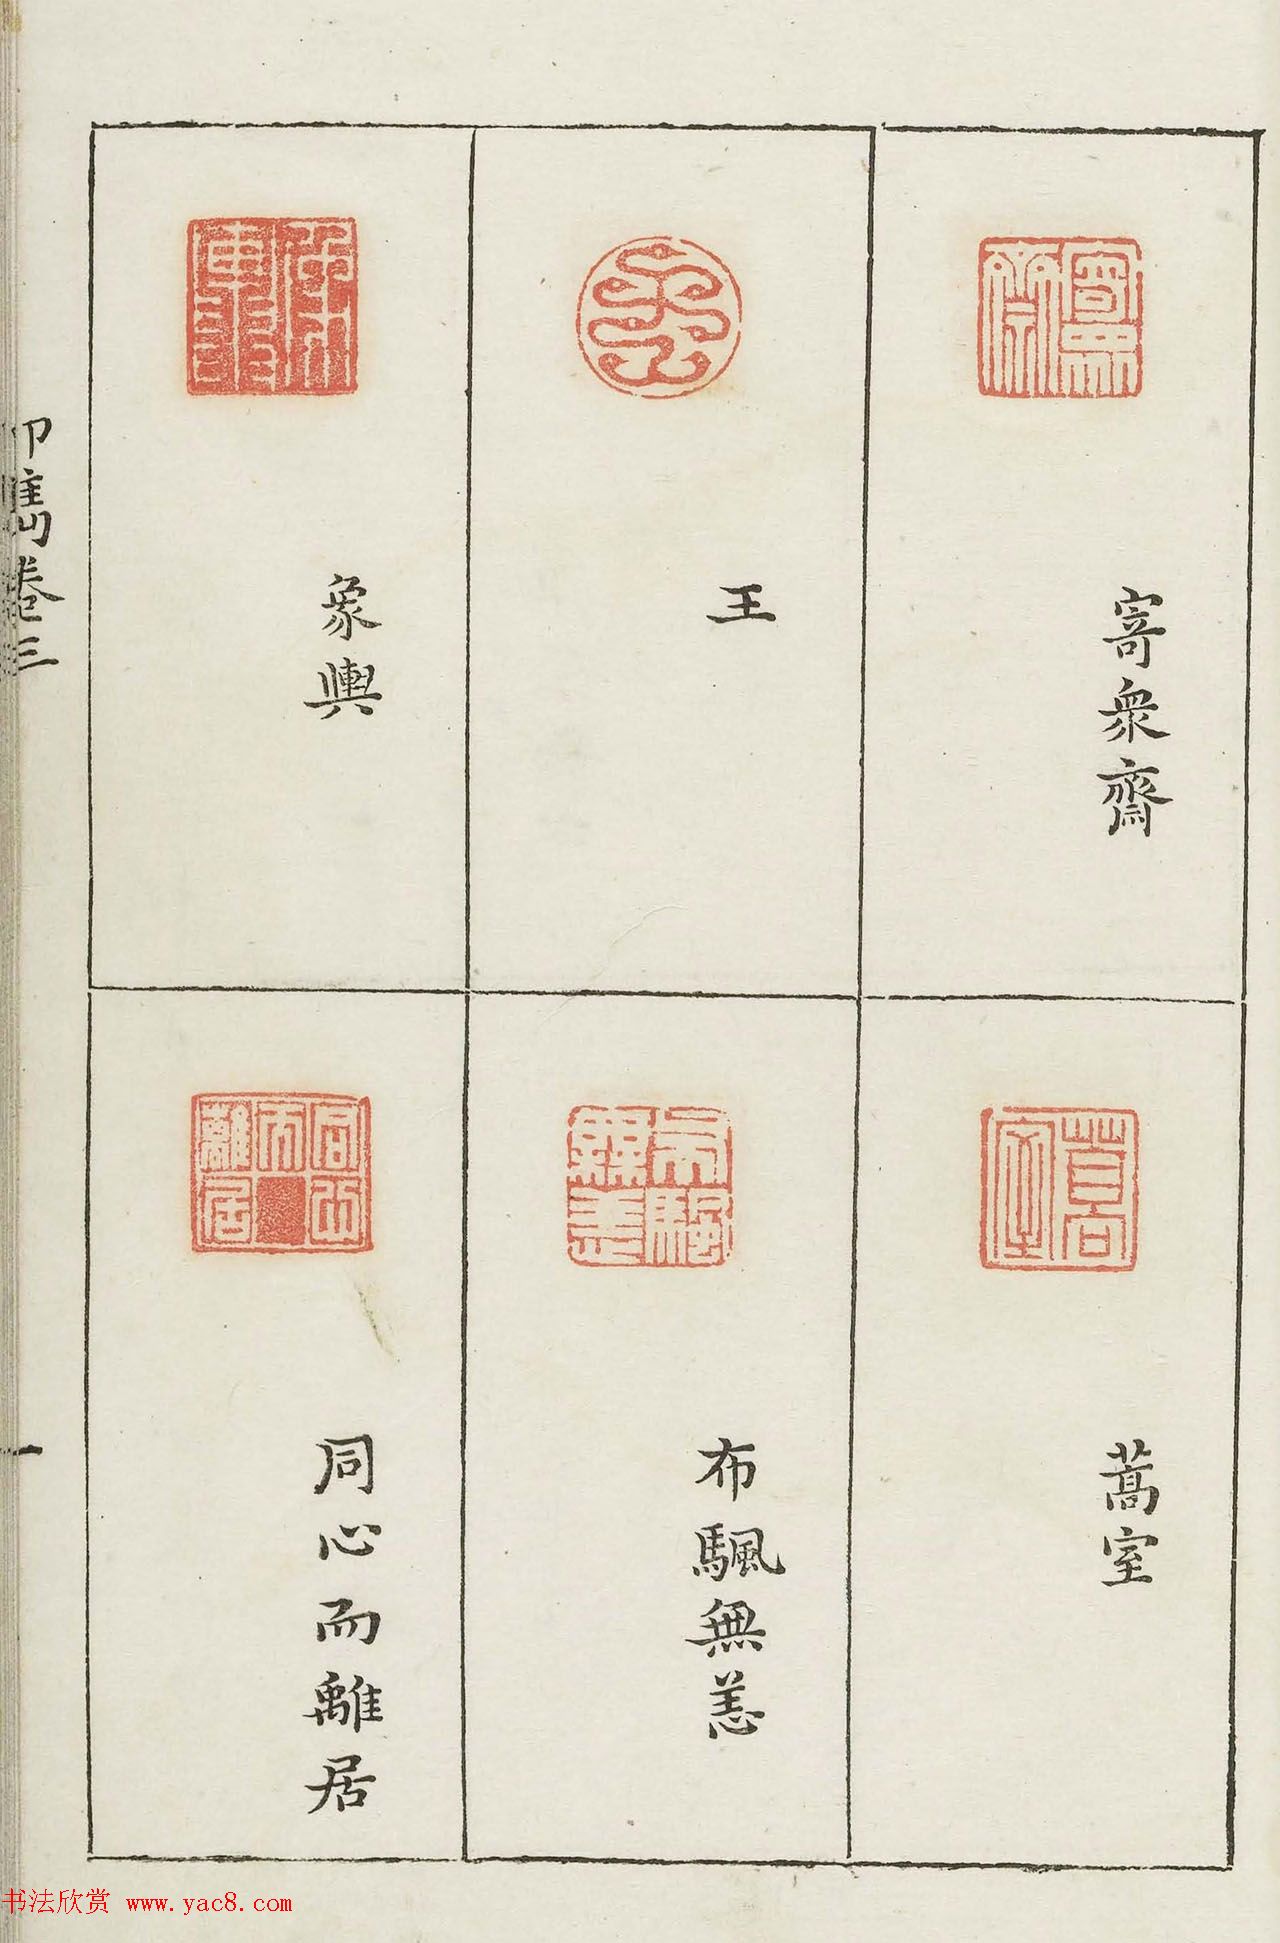 寄衆齋
王
象輿
蒿室
布颿無恙
同心而離居
印雋卷三
一
书法欣赏 www.yac8.com